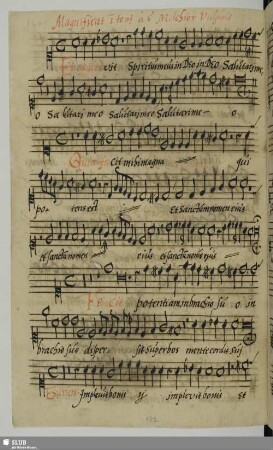 Magnificat 1 toni à 6 Melchior Vulpius
Et exultavit Spiritus meus in Deo in Deo Salutari meo
o Salutari meo Salutari meo Salutari meo
Quia fecit mihi magna qui
potens est et Sanctum nomen eius
et sanctum nomen eius et sanctum nomen eius
Fecit potentiam, in brachio suo in
brachio suo dispersit superbos mente cordis sui
implevit bonis ij implevit bonis et
SLUB